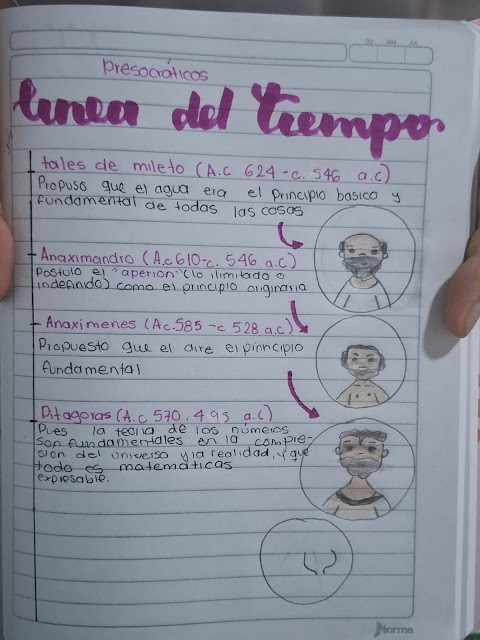 DD MM AA
Presocráticos
linea del tiempo
tales de mileto (A.c 624-c. 546 a.c)
Propuso que el agua era el principio basico y
fundamental de todas las cosas
Anaximandro (A.c 610-c. 546 a.c)
Postulo el "aperion" (lo ilimitado o
indefinido) como el principio originaria
Anaximenes (Ac.585-c 528 a.c)
Propuesto que el aire el principio
fundamental
Pitagoras (A.c 570.495 a.c)
Pues la teoria de los números
son fundamentales en la compre-
sion del universo y la realidad, y que
todo es matemáticas
expresable.
Norma